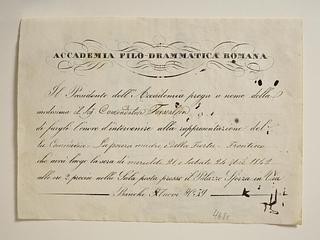 ACCADEMIA FILO-DRAMMATICA ROMANA
Il Presidente dell'Accademia prega a nome della
medesima il Sig. Comendatore
di fargli l'onore d'intervenire alla rappresentazione del
la Commedia La povera madre e della Farsa
che avrà luogo la sera di mercoledì 21 e Sabato 24
alle ore 2 precise nella Sala posta presso il Palazzo Sforza in Via
Banchi Nuovi N° 39